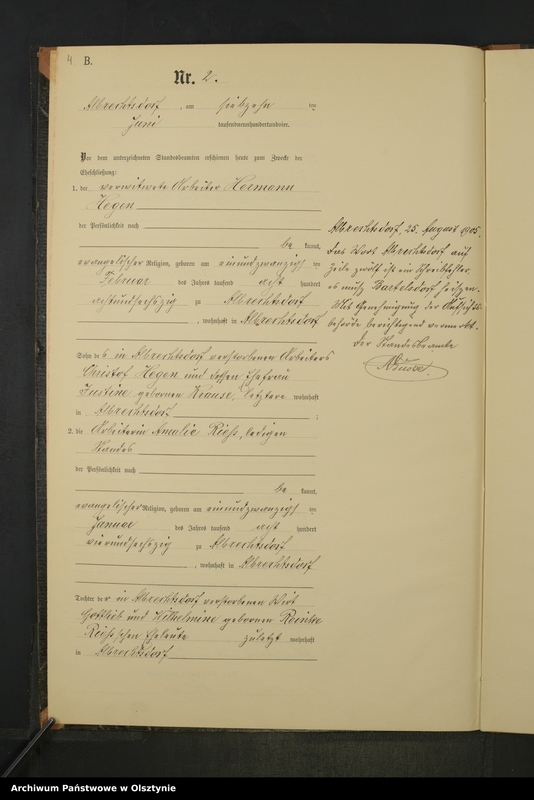 4 B.
Nr. 2.
Albrechtsdorf, am siebzehn ten
Juni tausendneunhundertundvier.
Vor dem unterzeichneten Standesbeamten erschienen heute zum Zwecke der
Eheschließung:
1. der verwitwete Arbeiter Hermann
Hegen
der Persönlichkeit nach
be kannt,
evangelischer Religion, geboren am einundzwanzigsten
Februar des Jahres tausend acht hundert
achtundsechszig zu Albrechtsdorf
, wohnhaft in Albrechtsdorf
Sohn des in Albrechtsdorf verstorbenen Arbeiters
Christof Hegen und dessen Ehefrau
Justine geborenen Krause, letztere wohnhaft
in Albrechtsdorf ;
2. die Arbeiterin Amalie Riess, ledigen
Standes
der Persönlichkeit nach
be kannt,
evangelischer Religion, geboren am einundzwanzigsten
Januar des Jahres tausend acht hundert
vierundsechszig zu Albrechtsdorf
, wohnhaft in Albrechtsdorf
Tochter der in Albrechtsdorf verstorbenen Wirt
Gottlieb und Wilhelmine geborenen Reinke
Riess'schen Eheleute zuletzt wohnhaft
in Albrechtsdorf
Albrechtsdorf, 25. August 1905.
Das Wort Albrechtsdorf auf
Zeile zwölf ist ein Schreibfehler,
es muß Bartelsdorf heißen.
Mit Genehmigung der Aufsichts-
behörde berichtigend vermerkt.
Der Standesbeamte
Archiwum Państwowe w Olsztynie